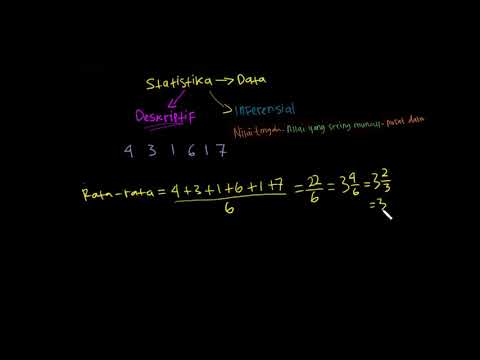 Statistika → Data
Deskriptif
Inferensial
Nilai tengah - Nilai yang sering muncul - pusat data
4 3 1 6 1 7
Rata-rata = 4+3+1+6+1+7 / 6 = 22/6 = 3 4/6 = 3 2/3
= 3